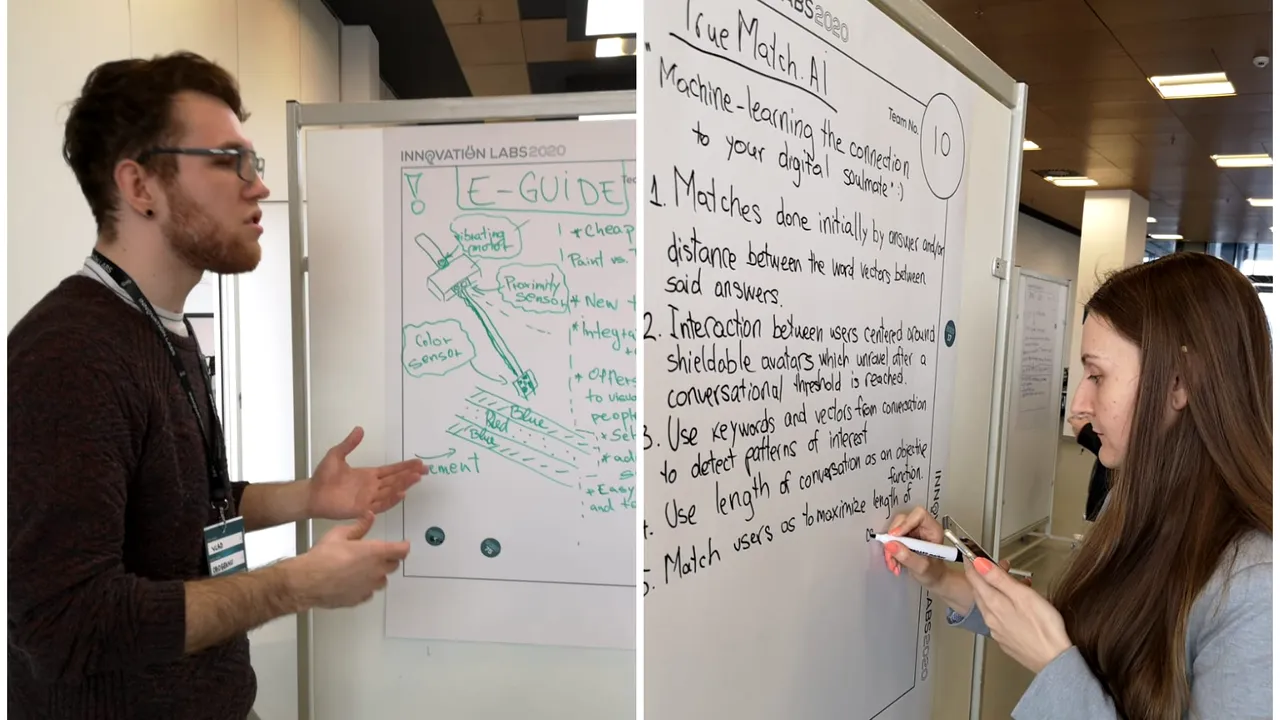 INNOVATION LABS 2020
E-GUIDE
vibrating
motor
Proximity
sensor
Color
sensor
Blue
Red
Blue
* Cheap
Paint vs.
* New
* Integra
* Offers
to visua
people
* Set
* ad
* Easy
and to
ement
VLAD
ABS2020
True Match.AI
Team No.
10
"Machine-learning the connection
to your digital soulmate" :)
1. Matches done initially by answer and/or
distance between the word vectors between
said answers.
2. Interaction between users centered around
shieldable avatars which unravel after a
conversational threshold is reached.
3. Use keywords and vectors from conversation
to detect patterns of interest
4. Use length of conversation as an objective
function.
5. Match users as to maximize length of
INNO
LABS2020